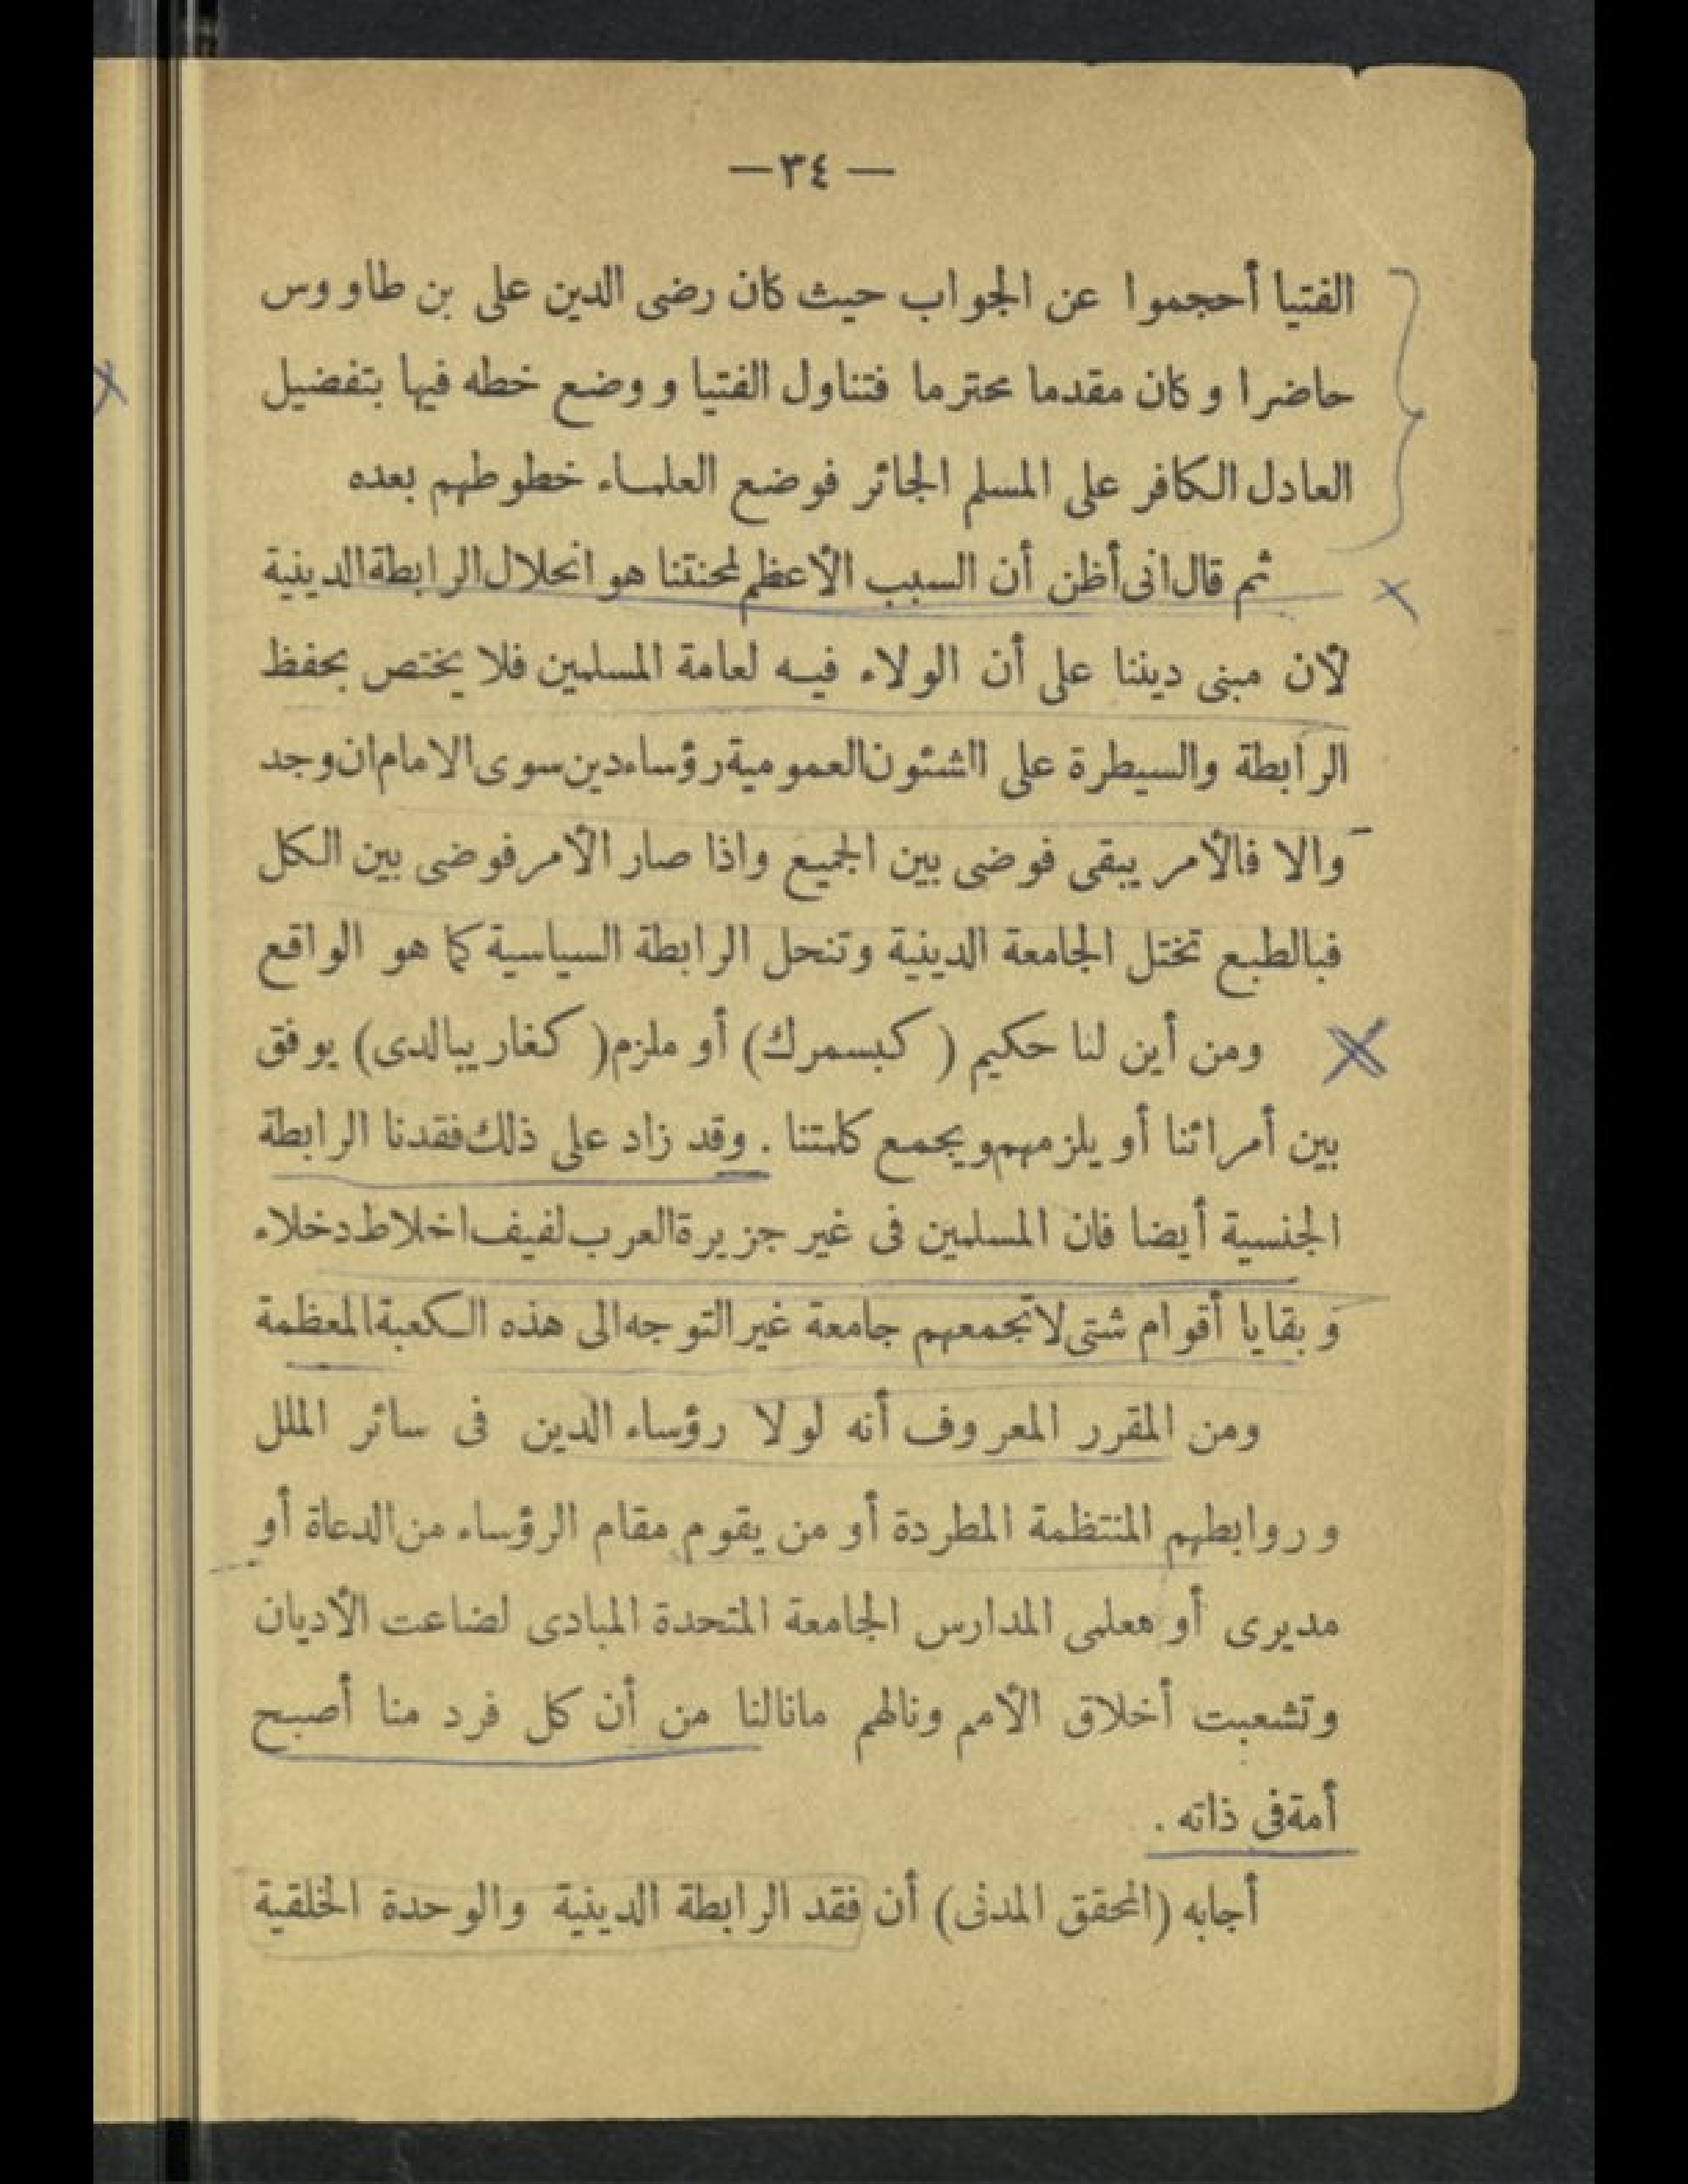 — ٣٤ —
الفتيا أحجموا عن الجواب حيث كان رضى الدين على بن طاووس
حاضرا وكان مقدما محترما فتناول الفتيا ووضع خطه فيها بتفضيل
العادل الكافر على المسلم الجائر فوضع العلماء خطوطهم بعده
ثم قال انى أظن أن السبب الأعظم لمحنتنا هو انحلال الرابطة الدينية
لأن مبنى ديننا على أن الولاء فيه لعامة المسلمين فلا يختص بحفظ
الرابطة والسيطرة على الشئون العمومية رؤساء دين سوى الامام ان وجد
والا فالأمر يبقى فوضى بين الجميع واذا صار الأمر فوضى بين الكل
فبالطبع تختل الجامعة الدينية وتنحل الرابطة السياسية كما هو الواقع
ومن أين لنا حكيم (كبسمرك) أو ملزم (كغاريبالدى) يوفق
بين أمرائنا أو يلزمهم ويجمع كلمتنا . وقد زاد على ذلك فقدنا الرابطة
الجنسية أيضا فان المسلمين فى غير جزيرة العرب لفيف اخلاط دخلاء
وبقايا أقوام شتى لا تجمعهم جامعة غير التوجه الى هذه الكعبة المعظمة
ومن المقرر المعروف أنه لولا رؤساء الدين فى سائر الملل
وروابطهم المنتظمة المطردة أو من يقوم مقام الرؤساء من الدعاة أو
مديرى أو معلمى المدارس الجامعة المتحدة المبادى لضاعت الأديان
وتشعبت أخلاق الأمم ونالهم مانالنا من أن كل فرد منا أصبح
أمة فى ذاته .
أجابه (المحقق المدنى) أن فقد الرابطة الدينية والوحدة الخلقية